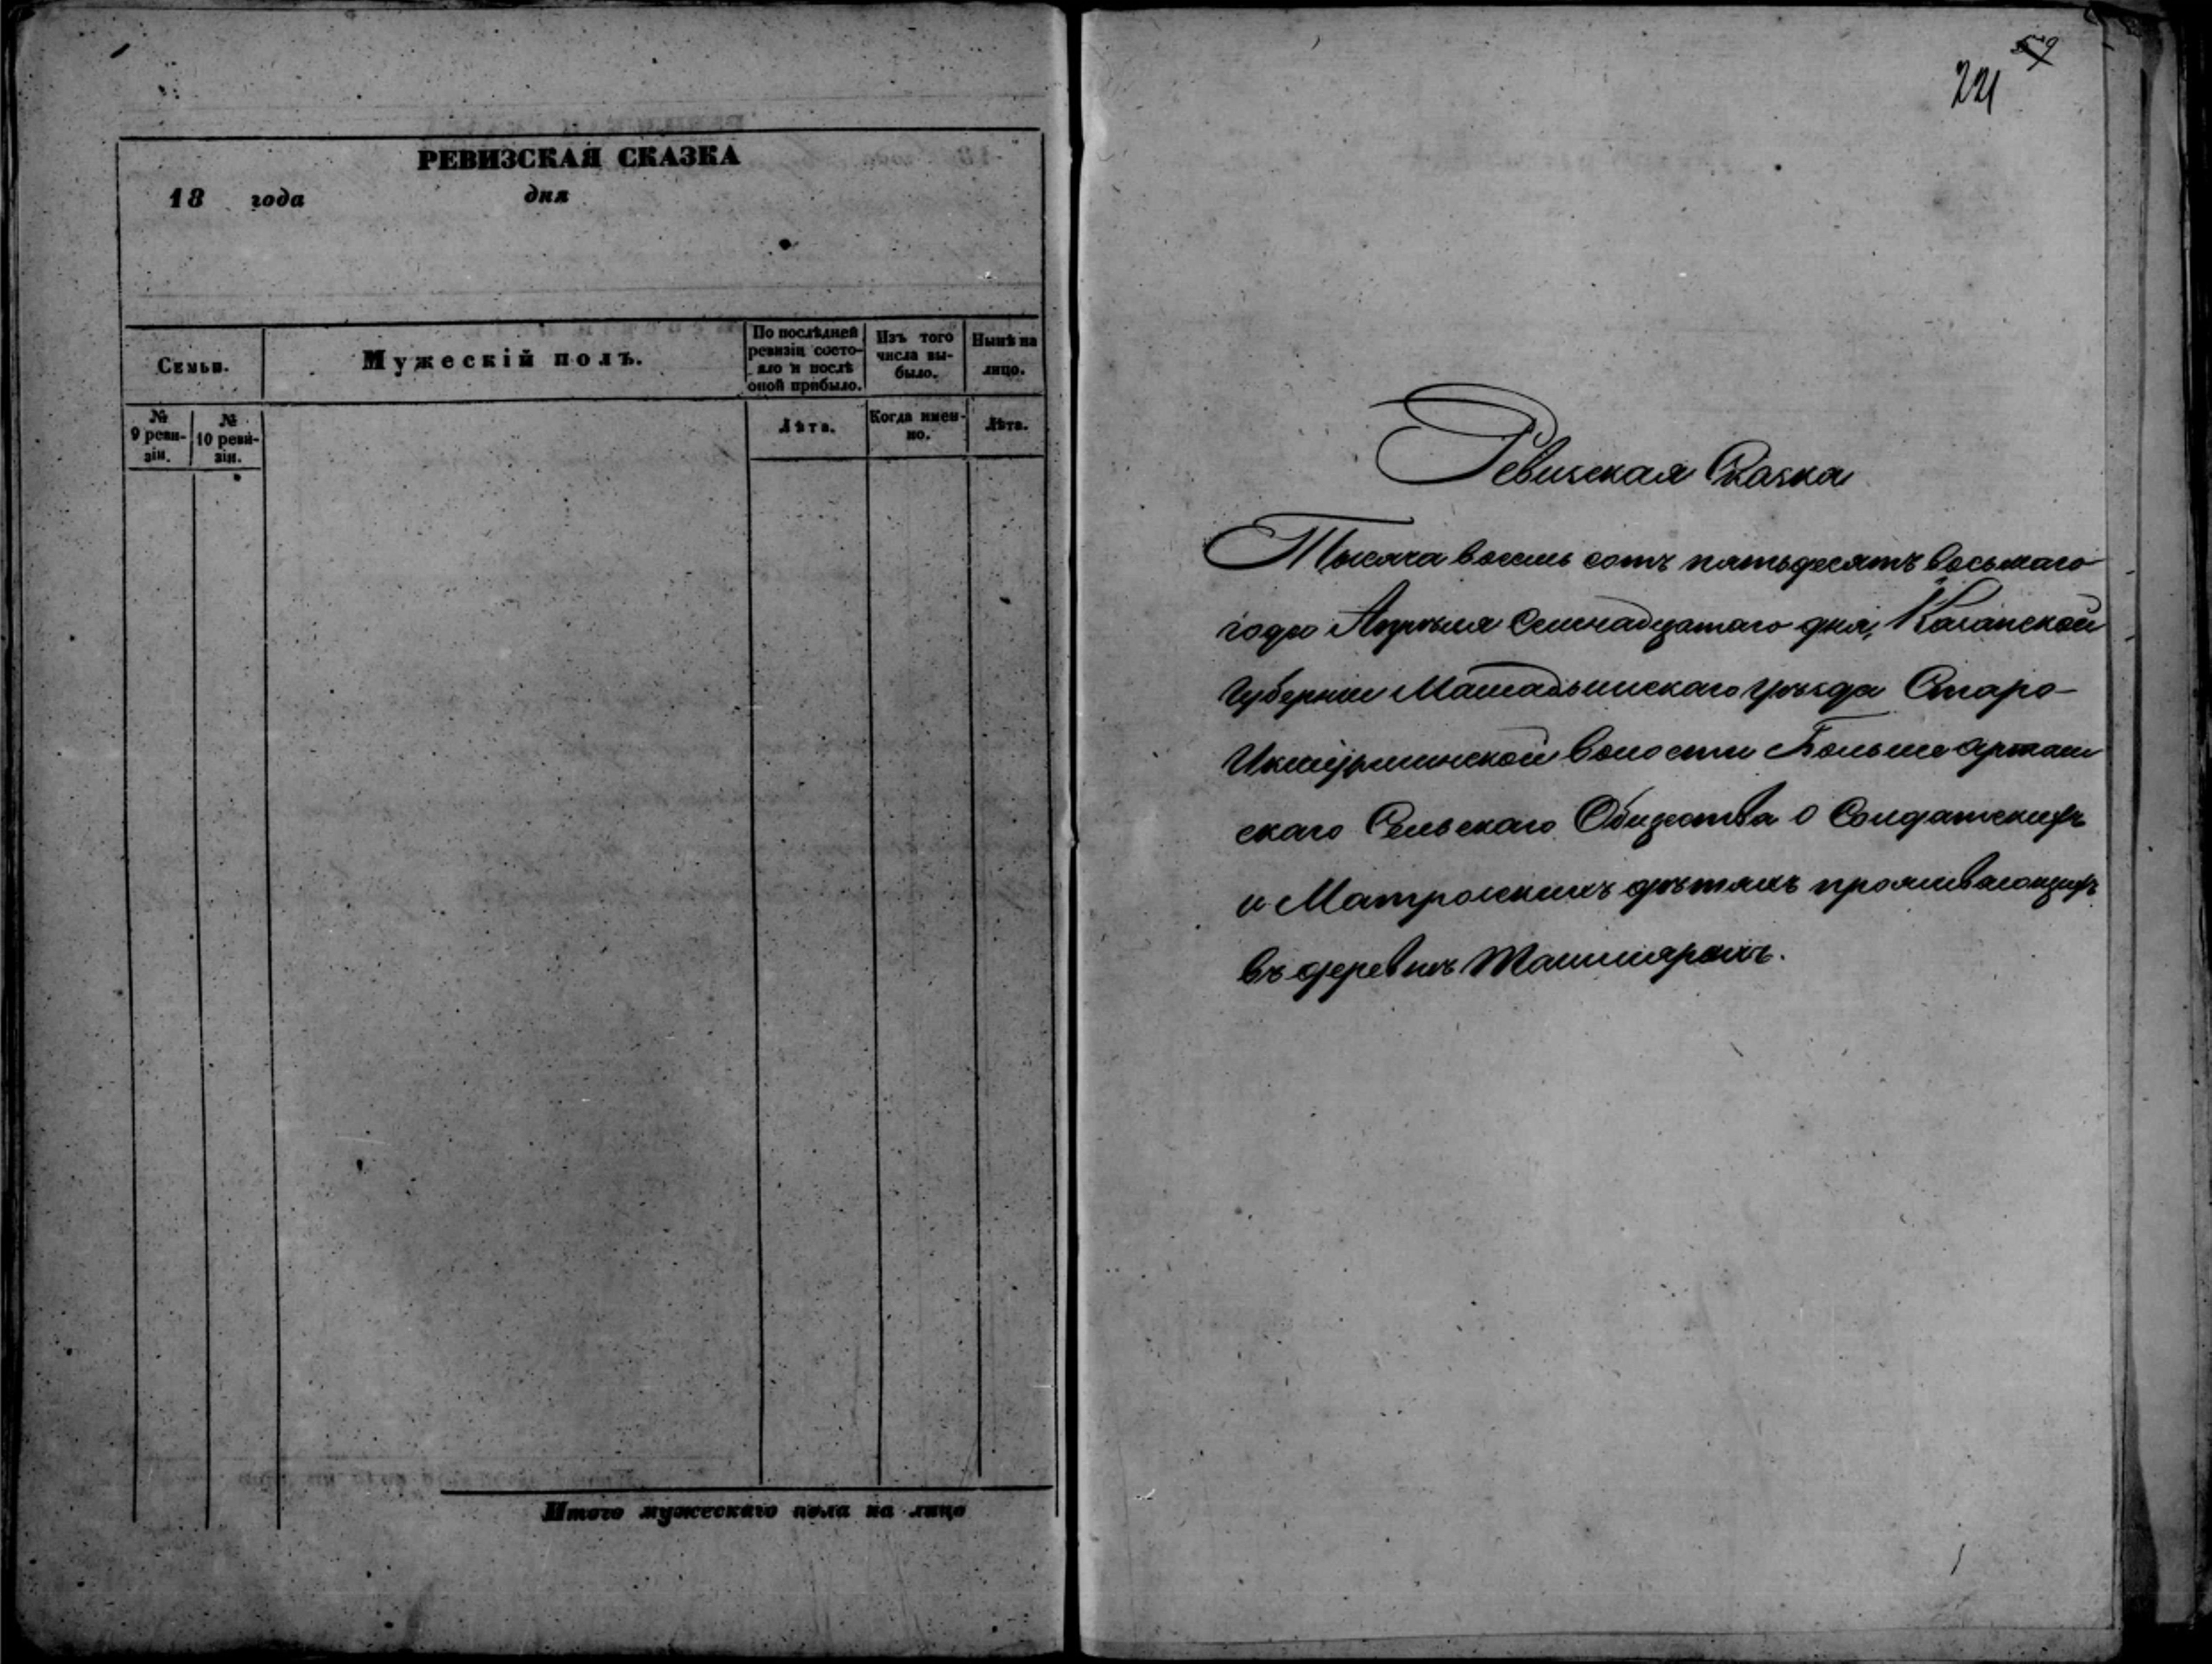 РЕВИЗСКАЯ СКАЗКА
18 года дня
Семьи.
Мужескій полъ.
По послѣдней
ревизіи состо-
яло и послѣ
оной прибыло.
Изъ того
числа вы-
было.
Нынѣ на
лицо.
№
9 реви-
зіи.
№
10 реви-
зіи.
Лѣта.
Когда имен-
но.
Лѣта.
Итого мужескаго пола на лицо
221
Ревизская Сказка
Тысяча восемь сотъ пятьдесятъ восьмаго
года Апрѣля Семнадцатаго дня, Казанской
Губерніи Мамадышскаго уѣзда Старо-
Икшурминской волости Больше Арташ
скаго Сельскаго Общества о Солдатскихъ
и Матроскихъ дѣтяхъ проживающихъ
въ деревнѣ